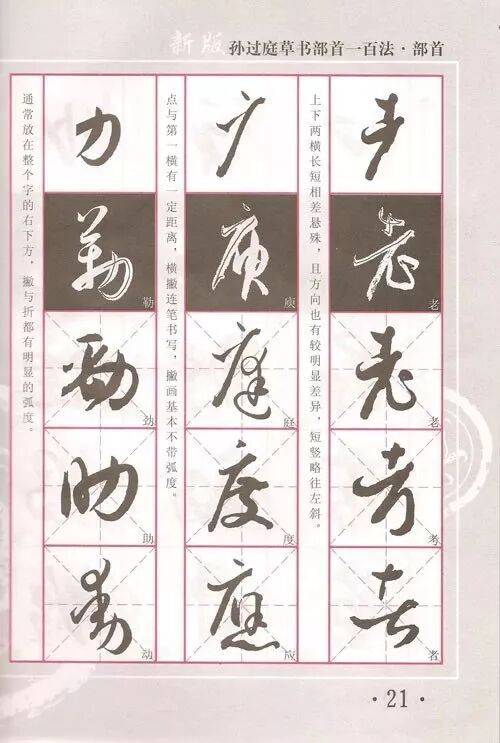 新版 孙过庭草书部首一百法·部首
耂
老
老
考
者
上下两横长短相差悬殊，且方向也有较明显差异，短竖略往左斜。
广
庾
庭
度
应
点与第一横有一定距离，横撇连笔书写，撇画基本不带弧度。
力
勒
劲
助
动
通常放在整个字的右下方，撇与折都有明显的弧度。
·21·